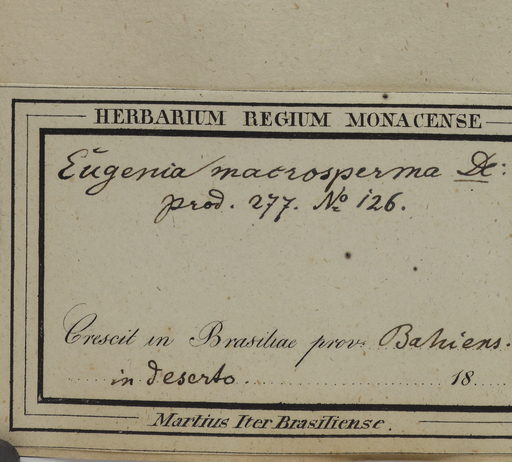 HERBARIUM REGIUM MONACENSE
Eugenia macrosperma DC:
prod. 277. No 126.
Crescit in Brasiliae prov. Bahiens.
in deserto 18
Martius Iter Brasiliense.